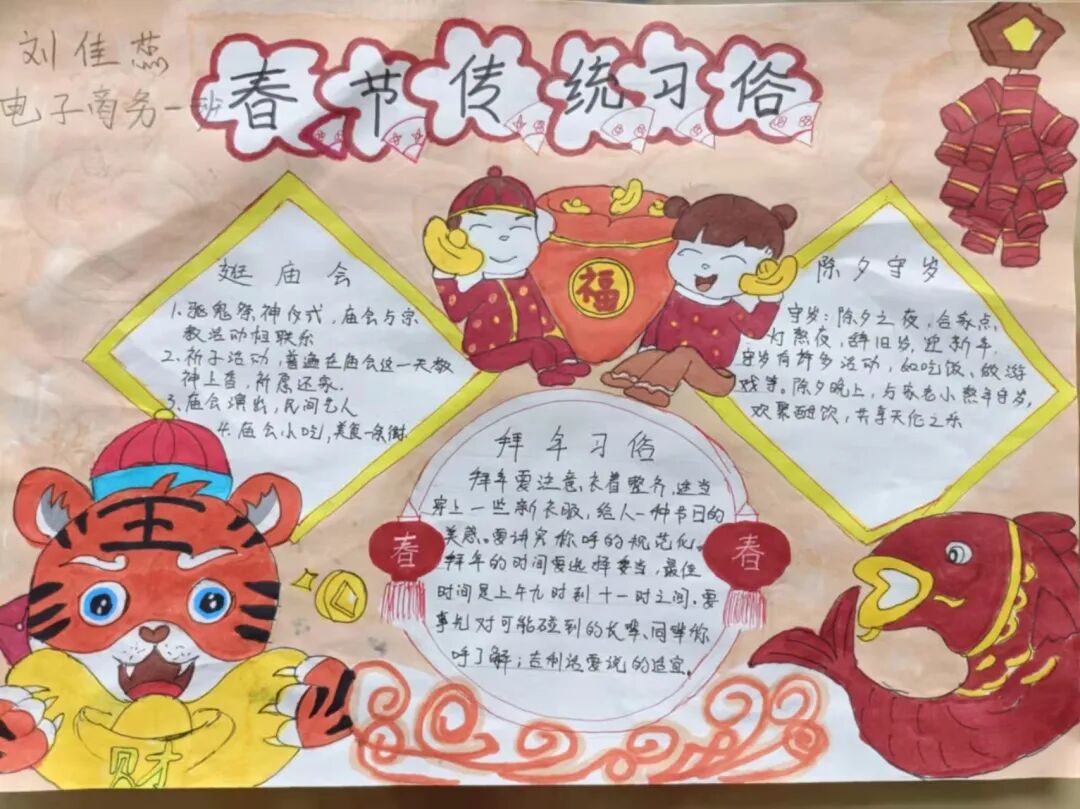 刘佳蕊
电子商务一班
春节传统习俗
逛庙会
1.驱鬼祭神仪式，庙会与宗
教活动相联乐
2.祈子活动，普遍在庙会这一天敬
神上香，祈愿还家.
3.庙会演出，民间艺人
4.庙会小吃，美食一条街
福
除夕守岁
守岁：除夕之夜，合家点
灯熬夜，辞旧岁，迎新年，
守岁有许多活动，如吃饭、做游
戏等。除夕晚上，与家老小熬年守岁，
欢聚酣饮，共享天伦之乐
拜年习俗
拜年要注意、衣着整齐，适当
穿上一些新衣服，给人一种节日的
美感。要讲究称呼的规范化。
拜年的时间要选择妥当，最佳
时间是上午九时到十一时之间、要
事先对可能碰到的长辈、同辈称
呼了解；吉利话要说的适宜。
春
春
王
财